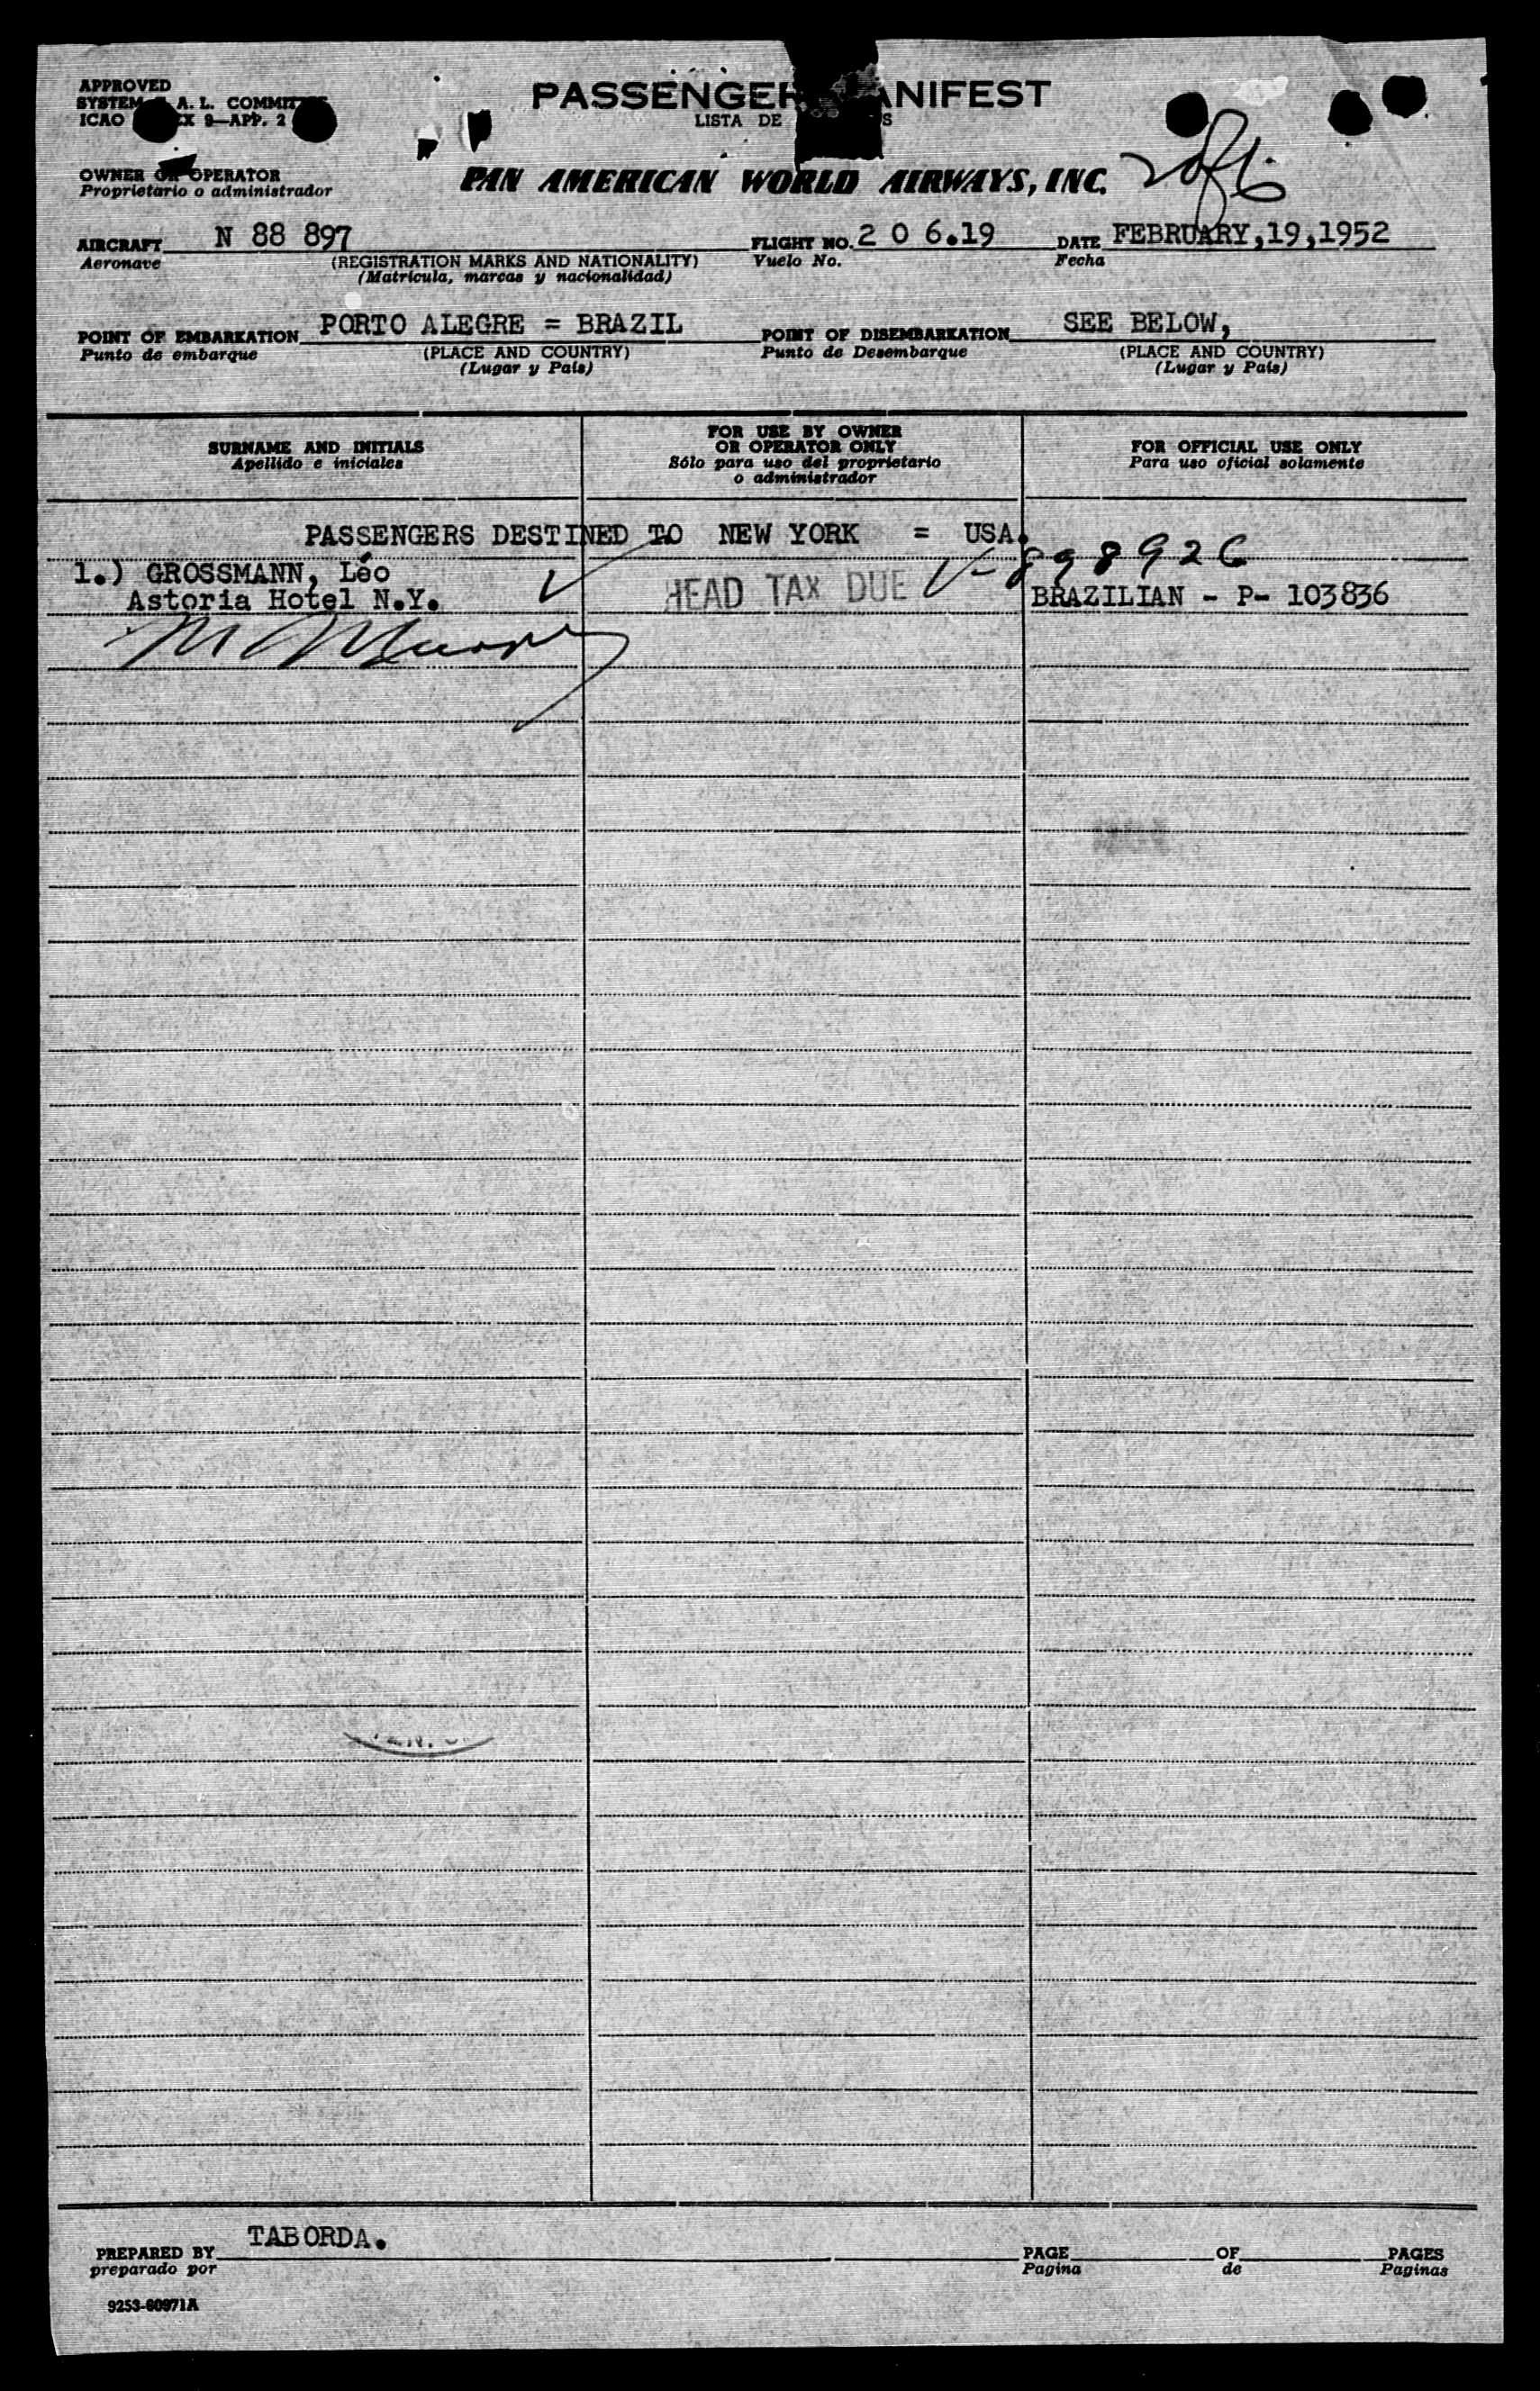 APPROVED
PASSENGER MANIFEST
SYSTEM A. L. COMMITTEE
ICAO 9—APP. 2
LISTA DE
OWNER OR OPERATOR
Proprietario o administrador
PAN AMERICAN WORLD AIRWAYS, INC.
AIRCRAFT N 88 897 FLIGHT NO. 2 0 6.19 DATE FEBRUARY,19,1952
Aeronave (REGISTRATION MARKS AND NATIONALITY) Vuelo No. Fecha
(Matricula, marcas y nacionalidad)
POINT OF EMBARKATION PORTO ALEGRE = BRAZIL POINT OF DISEMBARKATION SEE BELOW,
Punto de embarque (PLACE AND COUNTRY) Punto de Desembarque (PLACE AND COUNTRY)
(Lugar y País) (Lugar y País)
SURNAME AND INITIALS
Apellido e iniciales
FOR USE BY OWNER
OR OPERATOR ONLY
Sólo para uso del proprietario
o administrador
FOR OFFICIAL USE ONLY
Para uso oficial solamente
PASSENGERS DESTINED TO NEW YORK = USA.
1.) GROSSMANN, Léo
Astoria Hotel N.Y.
HEAD TAX DUE
V-898926
BRAZILIAN - P- 103836
PREPARED BY TABORDA. PAGE OF PAGES
preparado por Pagina de Paginas
9253-60971A